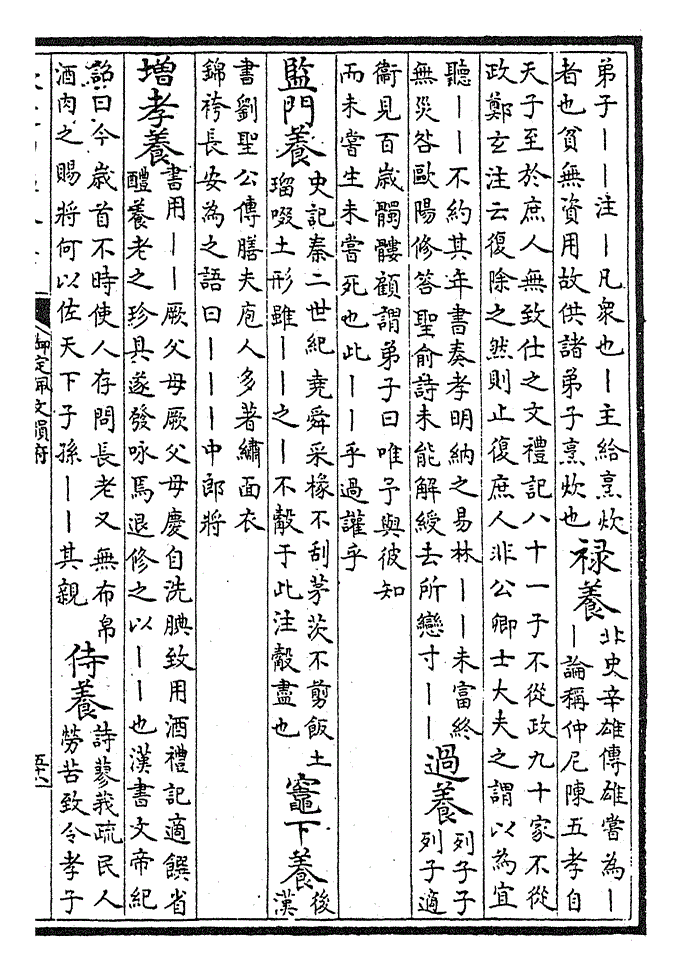 弟子丨丨注丨凡衆也丨主給烹炊
者也貧無資用故供諸弟子烹炊也
祿養
北史辛雄傳雄嘗為丨
丨論稱仲尼陳五孝自
天子至於庶人無致仕之文禮記八十一子不從政九十家不從
政鄭玄注云復除之然則止復庶人非公卿士大夫之謂以為宜
聽丨丨不約其年書奏孝明納之易林丨丨未富終
無災咎歐陽修答聖俞詩未能解綬去所戀寸丨丨
過養
列子子
列子適
衞見百歲髑髏顧謂弟子曰唯予與彼知
而未嘗生未嘗死也此丨丨乎過讙乎
監門養
史記秦二世紀堯舜采椽不刮茅茨不剪飯土
瑠啜土形雖丨丨之丨不觳于此注觳盡也
竈下養
後
漢
書劉聖公傳膳夫庖人多著繡面衣
錦袴長安為之語曰丨丨丨中郎將
增孝養
書用丨丨厥父母厥父母慶自洗腆致用酒禮記適饌省
醴養老之珍具遂發咏焉退修之以丨丨也漢書文帝紀
詔曰今歲首不時使人存問長老又無布帛
酒肉之賜將何以佐天下子孫丨丨其親
侍養
詩蓼莪疏民人
勞苦致令孝子
御定佩文韻府